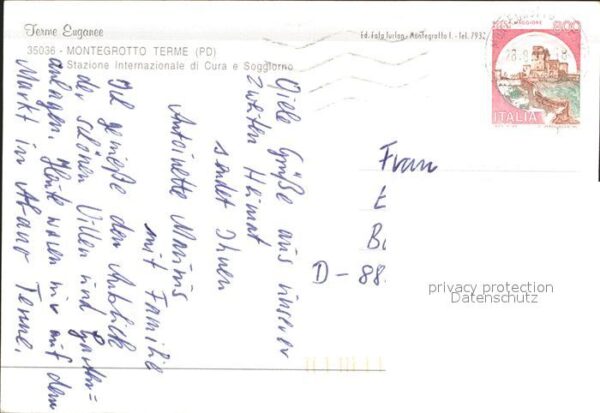 Terme Euganee
35036 - MONTEGROTTO TERME (PD)
Stazione Internazionale di Cura e Soggiorno
Ed. Foto Furlan - Montegrotto T. - Tel. 7932
MAGGIORE
800
ITALIA
Viele Grüße aus unserer
zweiten Heimat
sendet Ihnen
Antoinette
mit Familie
Ich genieße den Anblick
der schönen Villen und Garten=
anlagen. Heute waren wir auf dem
Markt in Abano Terme.
Frau
E
B
D - 88
privacy protection
Datenschutz